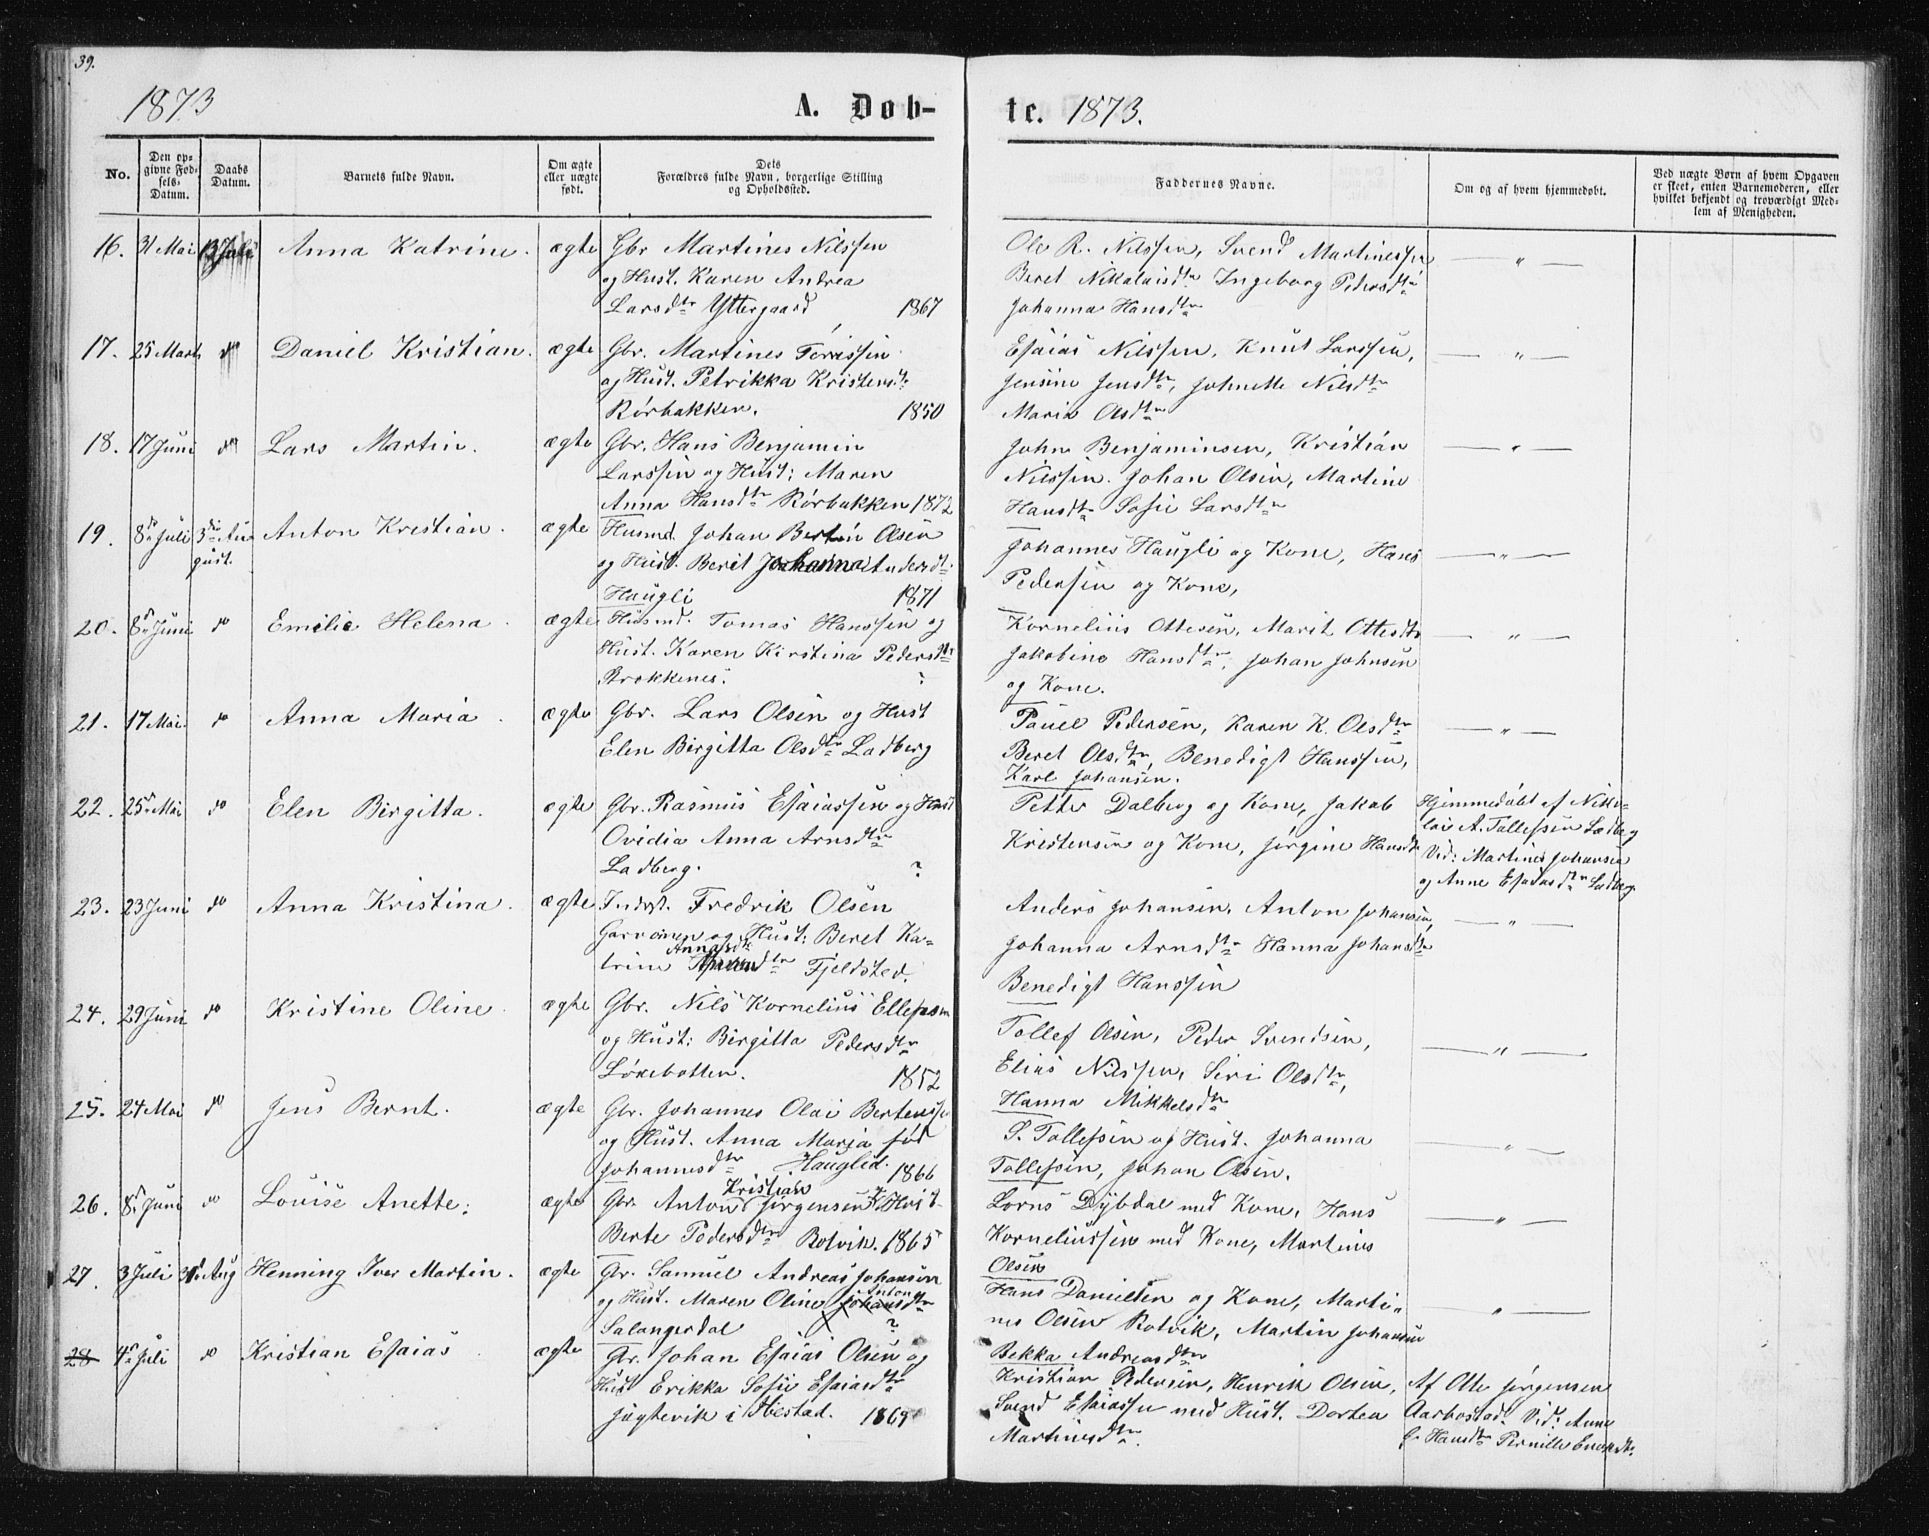 39.
1873
A. Døb-
te. 1873.
No.
Den op-
givne Fød-
sels-
Datum.
Daabs
Datum.
Barnets fulde Navn.
Om ægte
eller uægte
født.
Dets
Forældres fulde Navn, borgerlige Stilling
og Opholdssted.
Faddernes Navne.
Om og af hvem hjemmedøbt.
Ved uægte Børn af hvem Opgaven
er skeet, enten Barnemoderen, eller
hvilket bekjendt og troværdigt Med-
lem af Menigheden.
16. 31 Mai 13 Juli Anna Katrine. ægte Gbr Martines Nilssen
og Hust. Karen Andrea
Larsdtr Yttergaard 1867
Ole R. Nilssen, Svend Martinessen
Beret Nikolaisdtr Ingeborg Pedersdtr
Johanna Hansdtr
— " —
17. 25 Marts do Daniel Kristian. ægte Gbr. Martines Torrissen
og Hust. Petrikka Kristensdtr
Rørbakken. 1850
Esaias Nilssen, Knut Larssen,
Jensine Jensdtr, Johnette Nilsdtr
Maria Olsdtr
— " —
18. 17 Juni do Lars Martin. ægte Gbr. Hans Benjamin
Larssen og Hust: Maren
Anna Hansdtr Rørbakken 1872
John Benjaminsen, Kristian
Nilssen. Johan Olsen, Martine
Hansdtr Sofie Larsdtr
— " —
19. 8de Juli 3die Au-
gust. Anton Kristian. ægte Husmd. Johan Bertin Olsen
og Hust. Berit Johanna Andersdtr
Haugli 1871
Johannes Haugli og Kone, Hans
Pedersen og Kone,
— " —
20. 8de Juni do Emilie Helena. ægte Husmd. Tomas Hanssen og
Hust. Karen Kirstina Pedersdtr
Brokkenes.
Kornelius Ottesen, Marit Ottesdtr
Jakobine Hansdtr, Johan Johnsen
og Kone.
— " —
21. 17 Mai do Anna Maria. ægte Gbr. Lars Olsen og Hust
Elen Birgitta Olsdtr Ladberg
Pauel Pedersen, Karen K. Olsdtr
Beret Olsdtr, Benedigt Hanssen,
Karl Johansen.
— " —
22. 25de Mai do Elen Birgitta. ægte Gbr. Rasmus Esaiassen og Hust
Ovidia Anna Arnsdtr
Ladberg. ?
Petter Dalberg og Kone, Jakob
Kristensen og Kone, Jørgine Hansdtr
Hjemmedøbt af Niko-
lai A. Tollefsen Ladberg
Vid: Martines Johansen
og Anne Esaiasdtr Ladberg
23. 23 Juni do Anna Kristina. ægte Inderst. Fredrik Olsen
og Hust: Beret Ka-
Annasdtr
trine Fjeldsted.
Anders Johansen, Anton Johansen,
Johanna Arnsdtr Hanna Johansdtr
Benedigt Hanssen
— " —
24. 29 Juni do Kristine Oline. ægte Gbr. Nils Kornelius Ellefsen
og Hust: Birgitta Pedersdtr
Løxebotten. 1852
Tollef Olsen, Peder Svendsen,
Elias Nilssen, Siri Olsdtr,
Hanna Mikkelsdtr
— " —
25. 24 Mai do Jens Bernt. ægte Gbr. Johannes Olai Berteussen
og Hust. Anna Marja fød
Johannesdtr Hauglid. 1866
S. Tollefsen og Hust. Johanna
Tollefsen, Johan Olsen.
— " —
26. 8de Juni do Louise Anette. ægte
Kristian
Gbr. Anton Jørgensen & Hust
Berte Pedersdtr Rotvik. 1865
Lorns Dybdal med Kone, Hans
Korneliussen med Kone, Martines
Olsen
— " —
27. 3 Juli 31te Aug Henning Iver Martin. ægte Gbr. Samuel Andreas Johansen
Anton
og Hust. Maren Oline Johansdtr
Salangerdal ?
Hans Danielsen og Kone, Marti-
nes Olsen Rotvik, Martin Johansen
Bekka Andreasdtr
— " —
28 4de Juli do Kristian Esaias. ægte Gbr. Johan Esaias Olsen og
Hust Erikka Sofie Esaiasdtr
Jugtevik i Ibestad. 1869
Kristian Pedersen, Henrik Olsen,
Svend Esaiassen med Hust. Dortea
Martinesdtr.
Af Otte Jørgensen
Aarbostad. Vid: Anne
Hansdtr Pernille Enoksdtr.